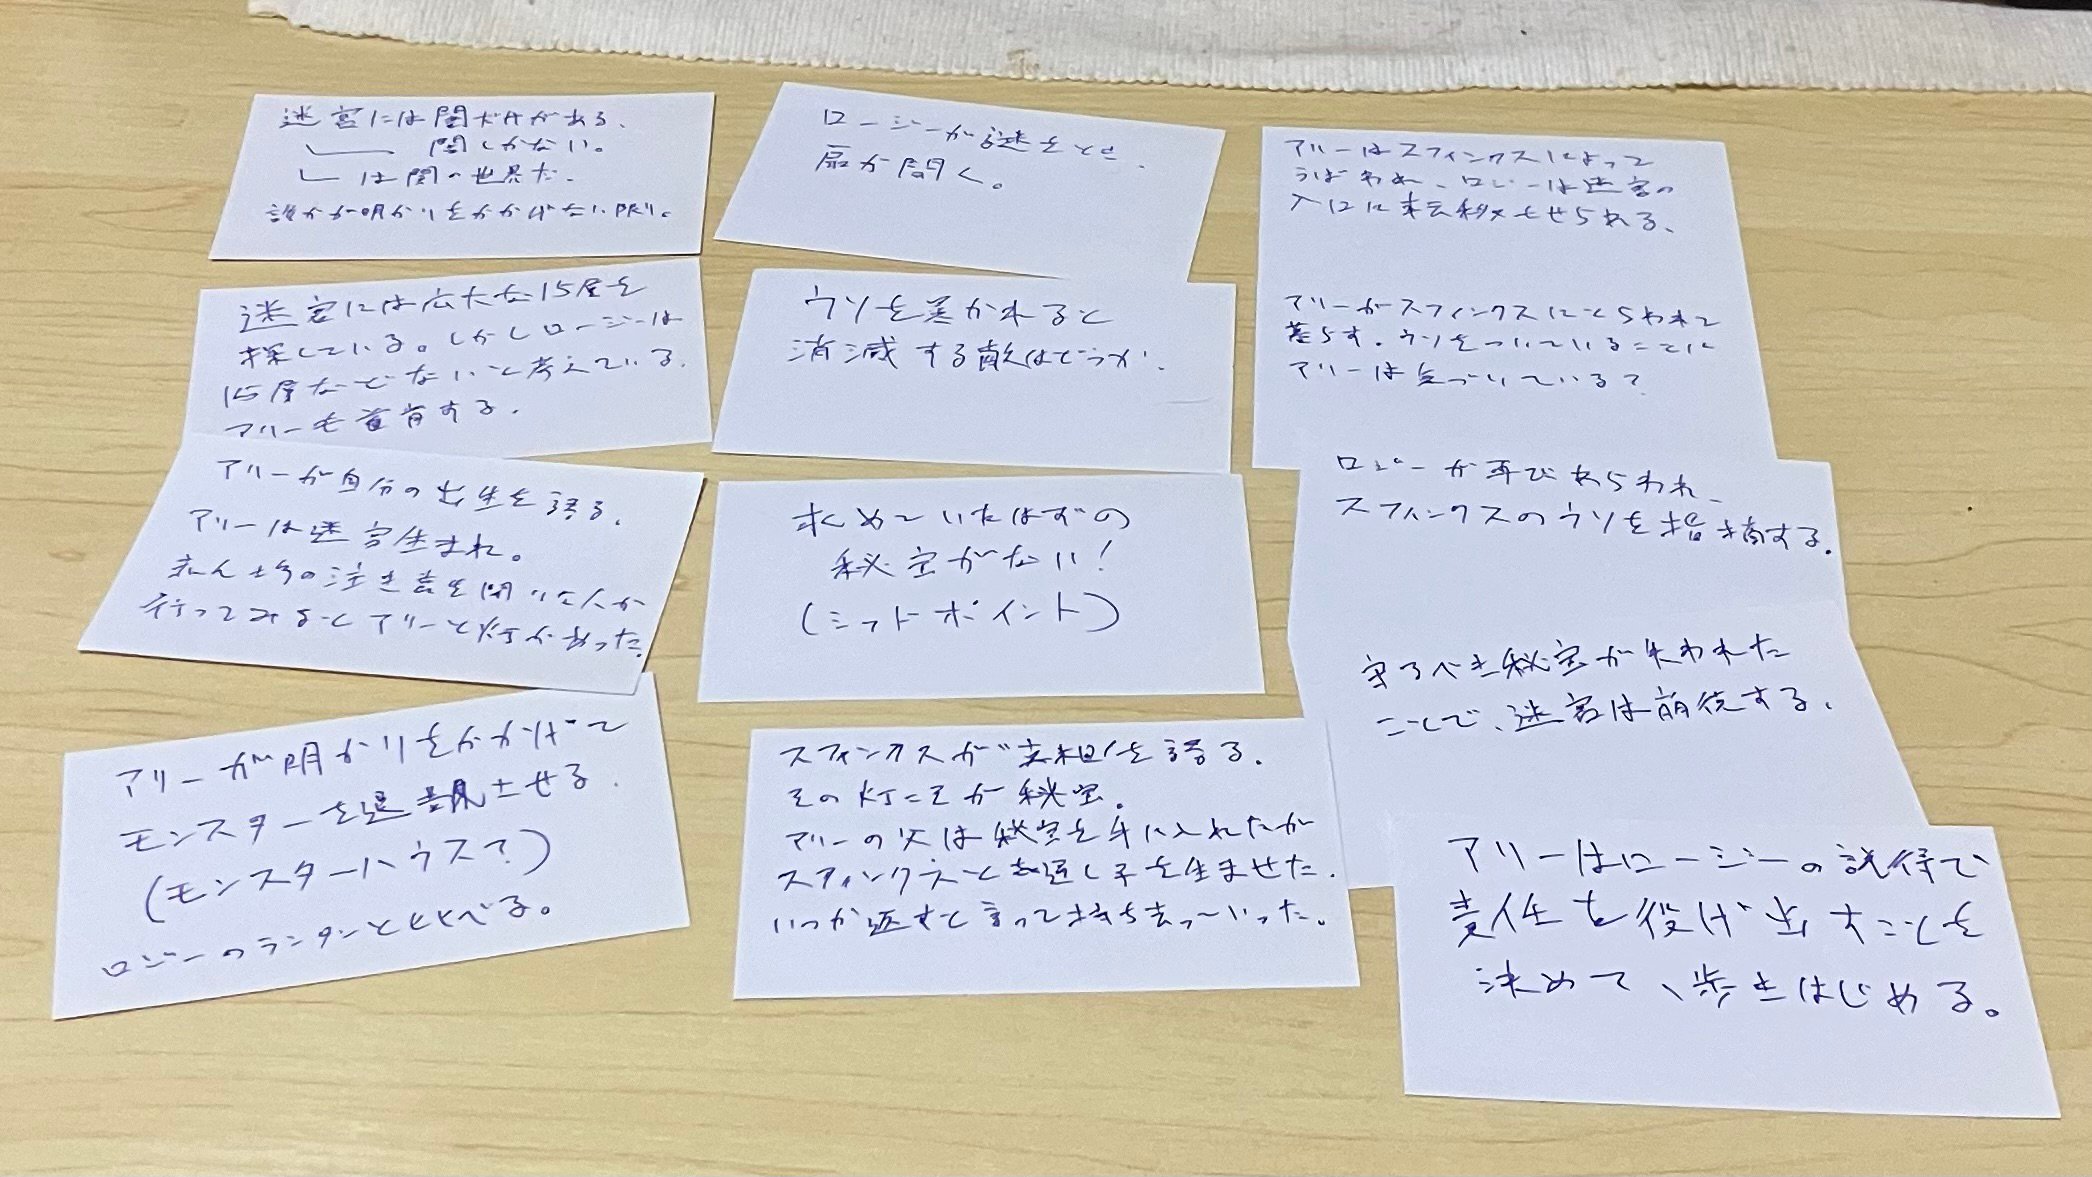 迷宮には闇だけがある、
闇しかない。
は闇の世界だ.
誰かが明かりをかかげない限り。
迷宮には広大な15層を
探している。しかしロージーは
15層などないと考えている.
アリーも首肯する.
アリーが自分の出生を語る.
アリーは迷宮生まれ。
赤ん坊の泣き声を聞いた人が
行ってみるとアリーと灯があった.
アリーが明かりをかかげて
モンスターを退散させる.
(モンスターハウス?)
ロジーのランタンとくらべる。
ロージーが謎をとき.
扉が開く。
ウソを暴かれると
消滅する敵はどうか.
求めていたはずの
秘宝がない!
(ミッドポイント)
スフィンクスが真相を語る.
その灯こそが秘宝.
アリーの父は秘宝を手に入れたが
スフィンクスとを通し子を生ませた.
いつか返すと言って持ち去っていった.
アリーはスフィンクスによって
うばわれ、ロジーは迷宮の
入口に転移させられる、
アリーがスフィンクスにとらわれて
暮らす.ウソをついていることに
アリーは気づいている?
ロジーが再びあらわれ、
スフィンクスのウソを指摘する.
守るべき秘宝が失われた
ことで、迷宮は崩壊する.
アリーはロージーの説得で
責任を投げ出すことを
決めて、歩きはじめる。